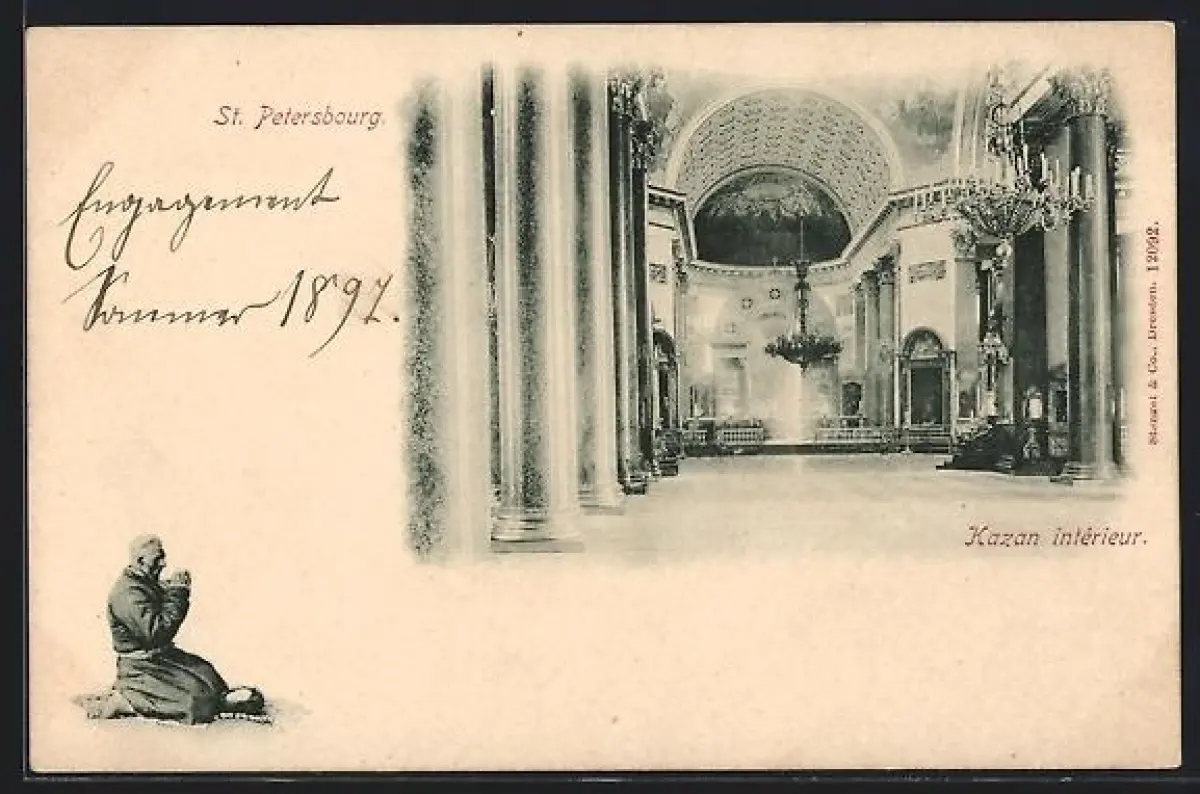 St. Petersbourg.
Engagement
Sommer 1897.
Kazan intérieur.
Stengel & Co., Dresden. 12092.